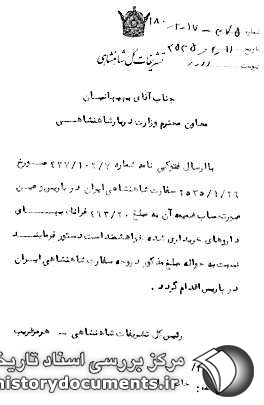 شماره ۳۷۵ - ۱۷ - ۲ - ۱۸۰
تاریخ ۲۵۳۵
پیوست
تشریفات کل شاهنشاهی
جناب آقای بهبهانیان
معاون محترم وزارت دربار شاهنشاهی
با ارسال فتوکپی نامه شماره ۴۳۷/۱۰۲/۷ مورخ
۲۵۳۵/۱/۲۶ سفارت شاهنشاهی ایران در پاریس و عین
صورتحساب ضمیمه آن به مبلغ ۴۶۳/۲۰ فرانک بهای
داروهای خریداری شده خواهشمند است دستور فرمایند
نسبت به حواله مبلغ مذکور در وجه سفارت شاهنشاهی ایران
در پاریس اقدام گردد .
رئیس کل تشریفات شاهنشاهی - هرمز قریب
مرکز بررسی اسناد تاریخی
historydocuments.ir